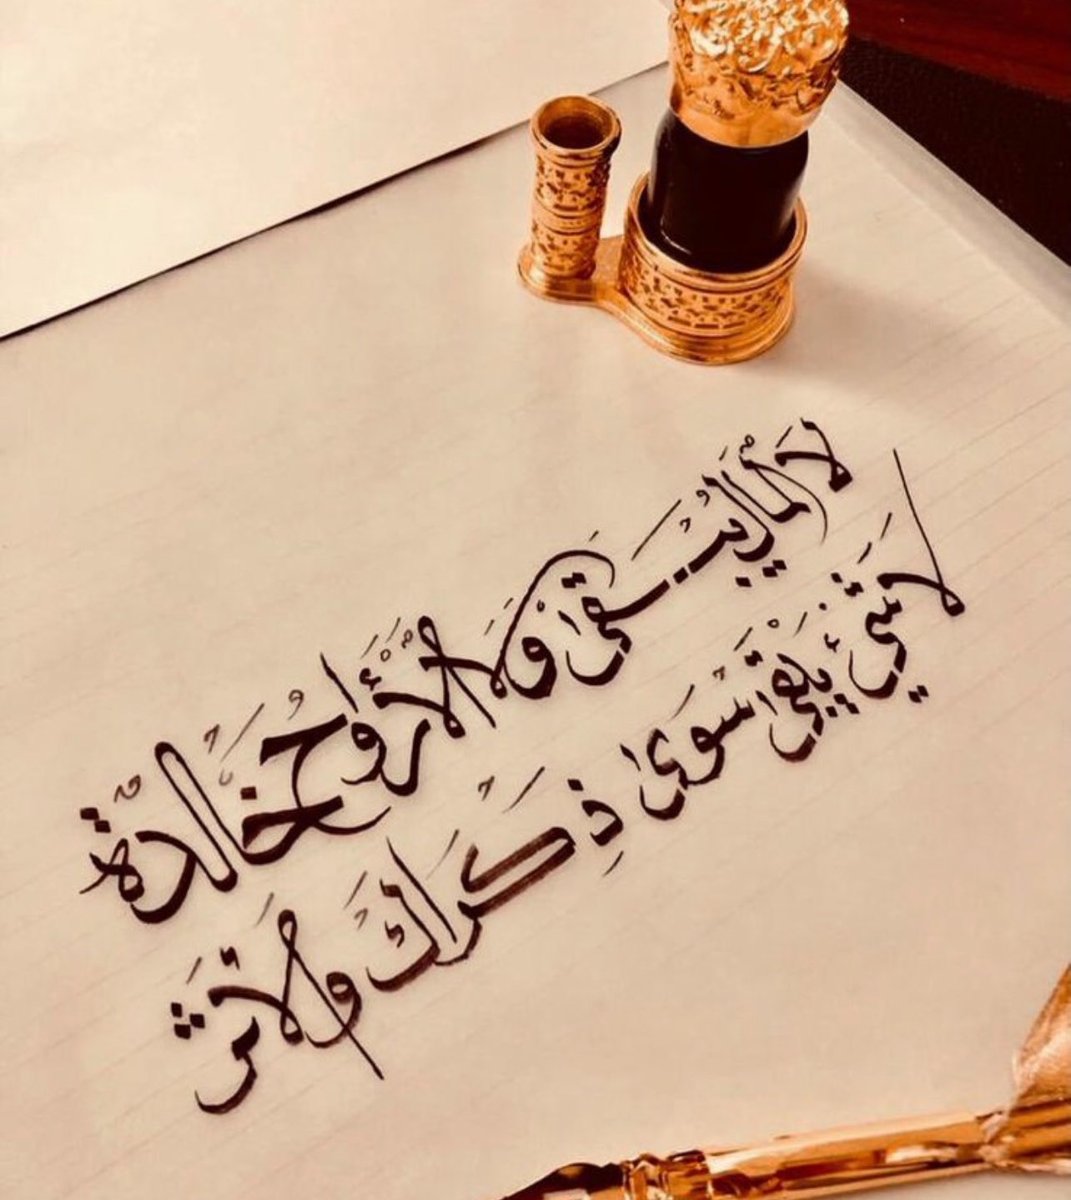 لَا المَالُ يَبْقَىٰ وَلَا الأَرْوَاحُ خَالِدَةٌ
لَا شَيْءَ يَبْقَىٰ سِوَىٰ ذِكْرَاكَ وَالأَثَرْ